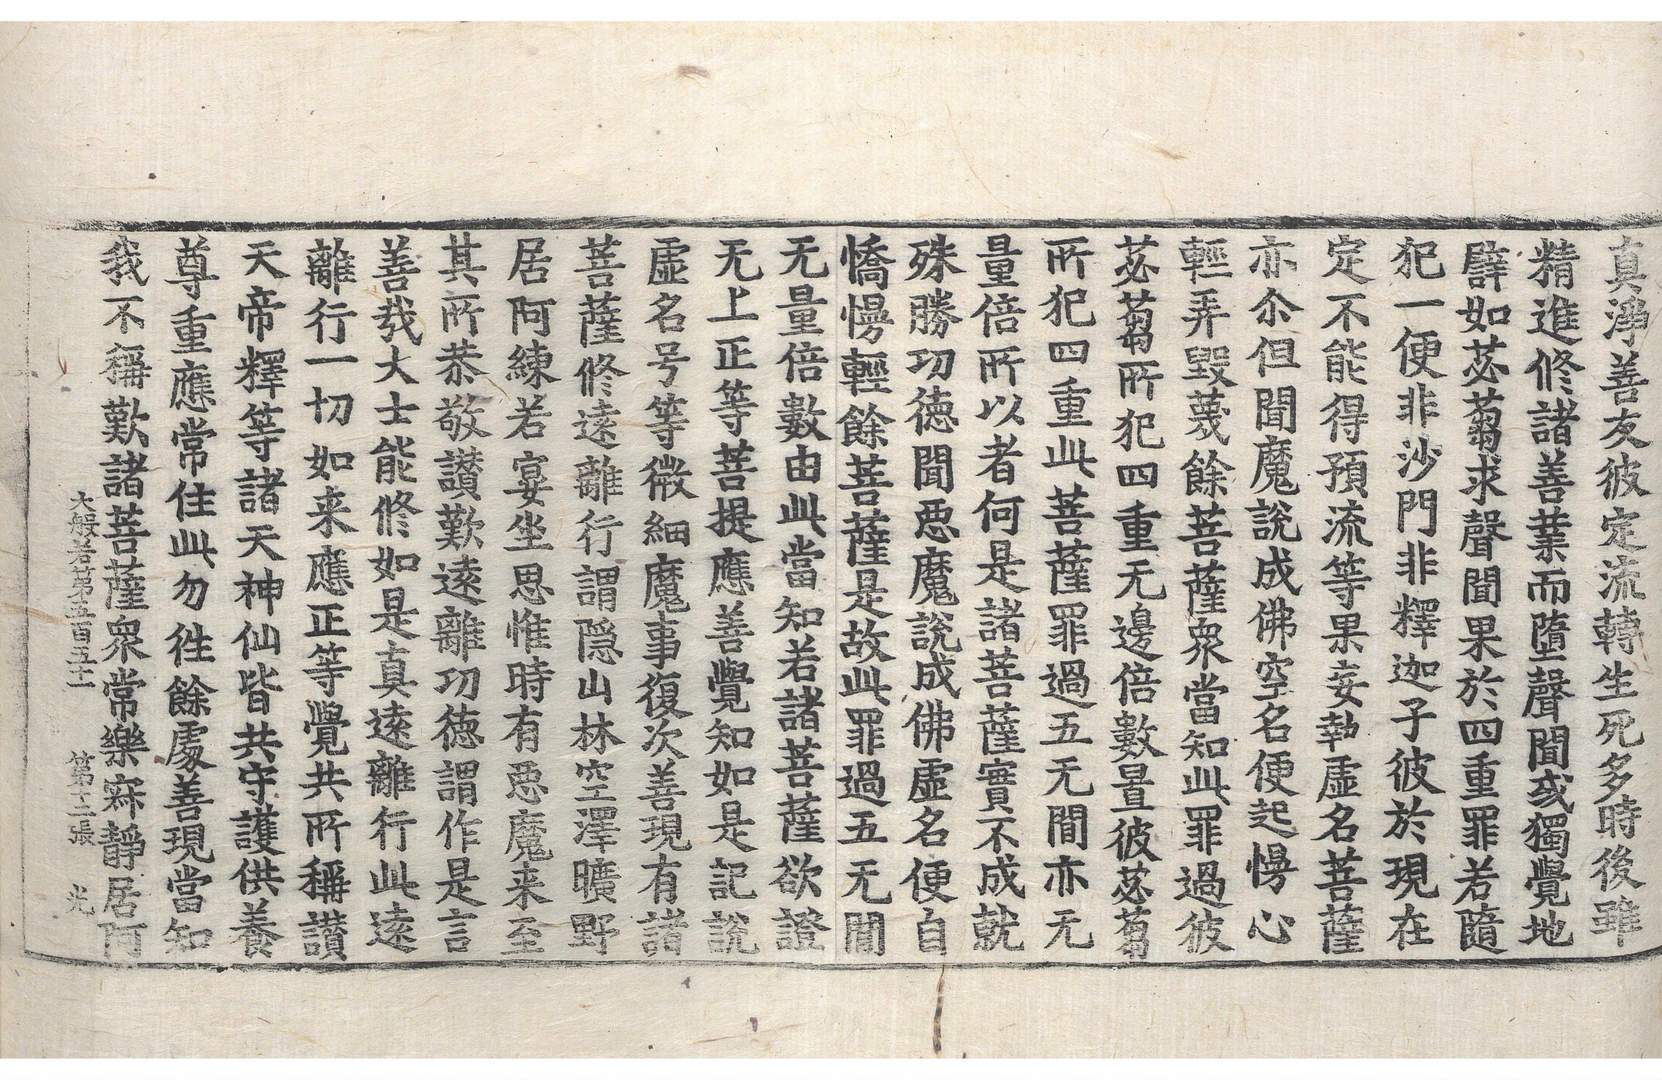 真淨善友彼定流轉生死多時後雖
精進修諸善業而墮聲聞或獨覺地
譬如苾蒭求聲聞果於四重罪若隨
犯一便非沙門非釋迦子彼於現在
定不能得預流等果妄執虛名菩薩
亦尒但聞魔說成佛空名便起慢心
輕弄毀蔑餘菩薩衆當知此罪過彼
苾蒭所犯四重无邊倍數置彼苾蒭
所犯四重此菩薩罪過五无間亦无
量倍所以者何是諸菩薩實不成就
殊勝功德聞惡魔說成佛虛名便自
憍慢輕餘菩薩是故此罪過五无間
无量倍數由此當知若諸菩薩欲證
无上正等菩提應善覺知如是記說
虛名号等微細魔事復次善現有諸
菩薩修遠離行謂隱山林空澤曠野
居阿練若宴坐思惟時有惡魔来至
其所恭敬讃歎遠離功德謂作是言
善哉大士能修如是真遠離行此遠
離行一切如来應正等覺共所稱讃
天帝釋等諸天神仙皆共守護供養
尊重應常住此勿徃餘處善現當知
我不稱歎諸菩薩衆常樂寂靜居阿
大般若第五百五十一 第十二張 光